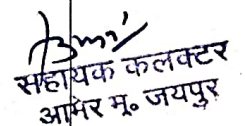 सहायक कलक्टर
आमेर मु० जयपुर